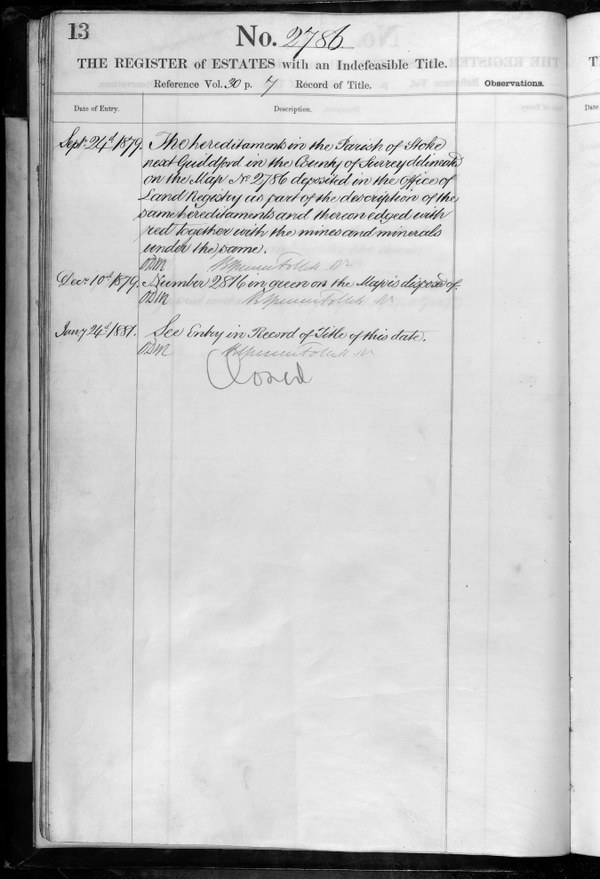 13
No. 2786
THE REGISTER of ESTATES with an Indefeasible Title.
Reference Vol. 30 p. 7 Record of Title.
Observations.
Date of Entry.
Description.
Sept 24th 1879. The hereditaments in the Parish of Stoke
next Guildford in the County of Surrey delineated
on the Map No 2786 deposited in the Office of
Land Registry as part of the description of the
same hereditaments and thereon edged with
red together with the mines and minerals
under the same.
Decr 10th 1879. Number 2816 on green on the Map is disposed of.
Jany 24th 1881. See Entry in Record of Title of this date.
Closed